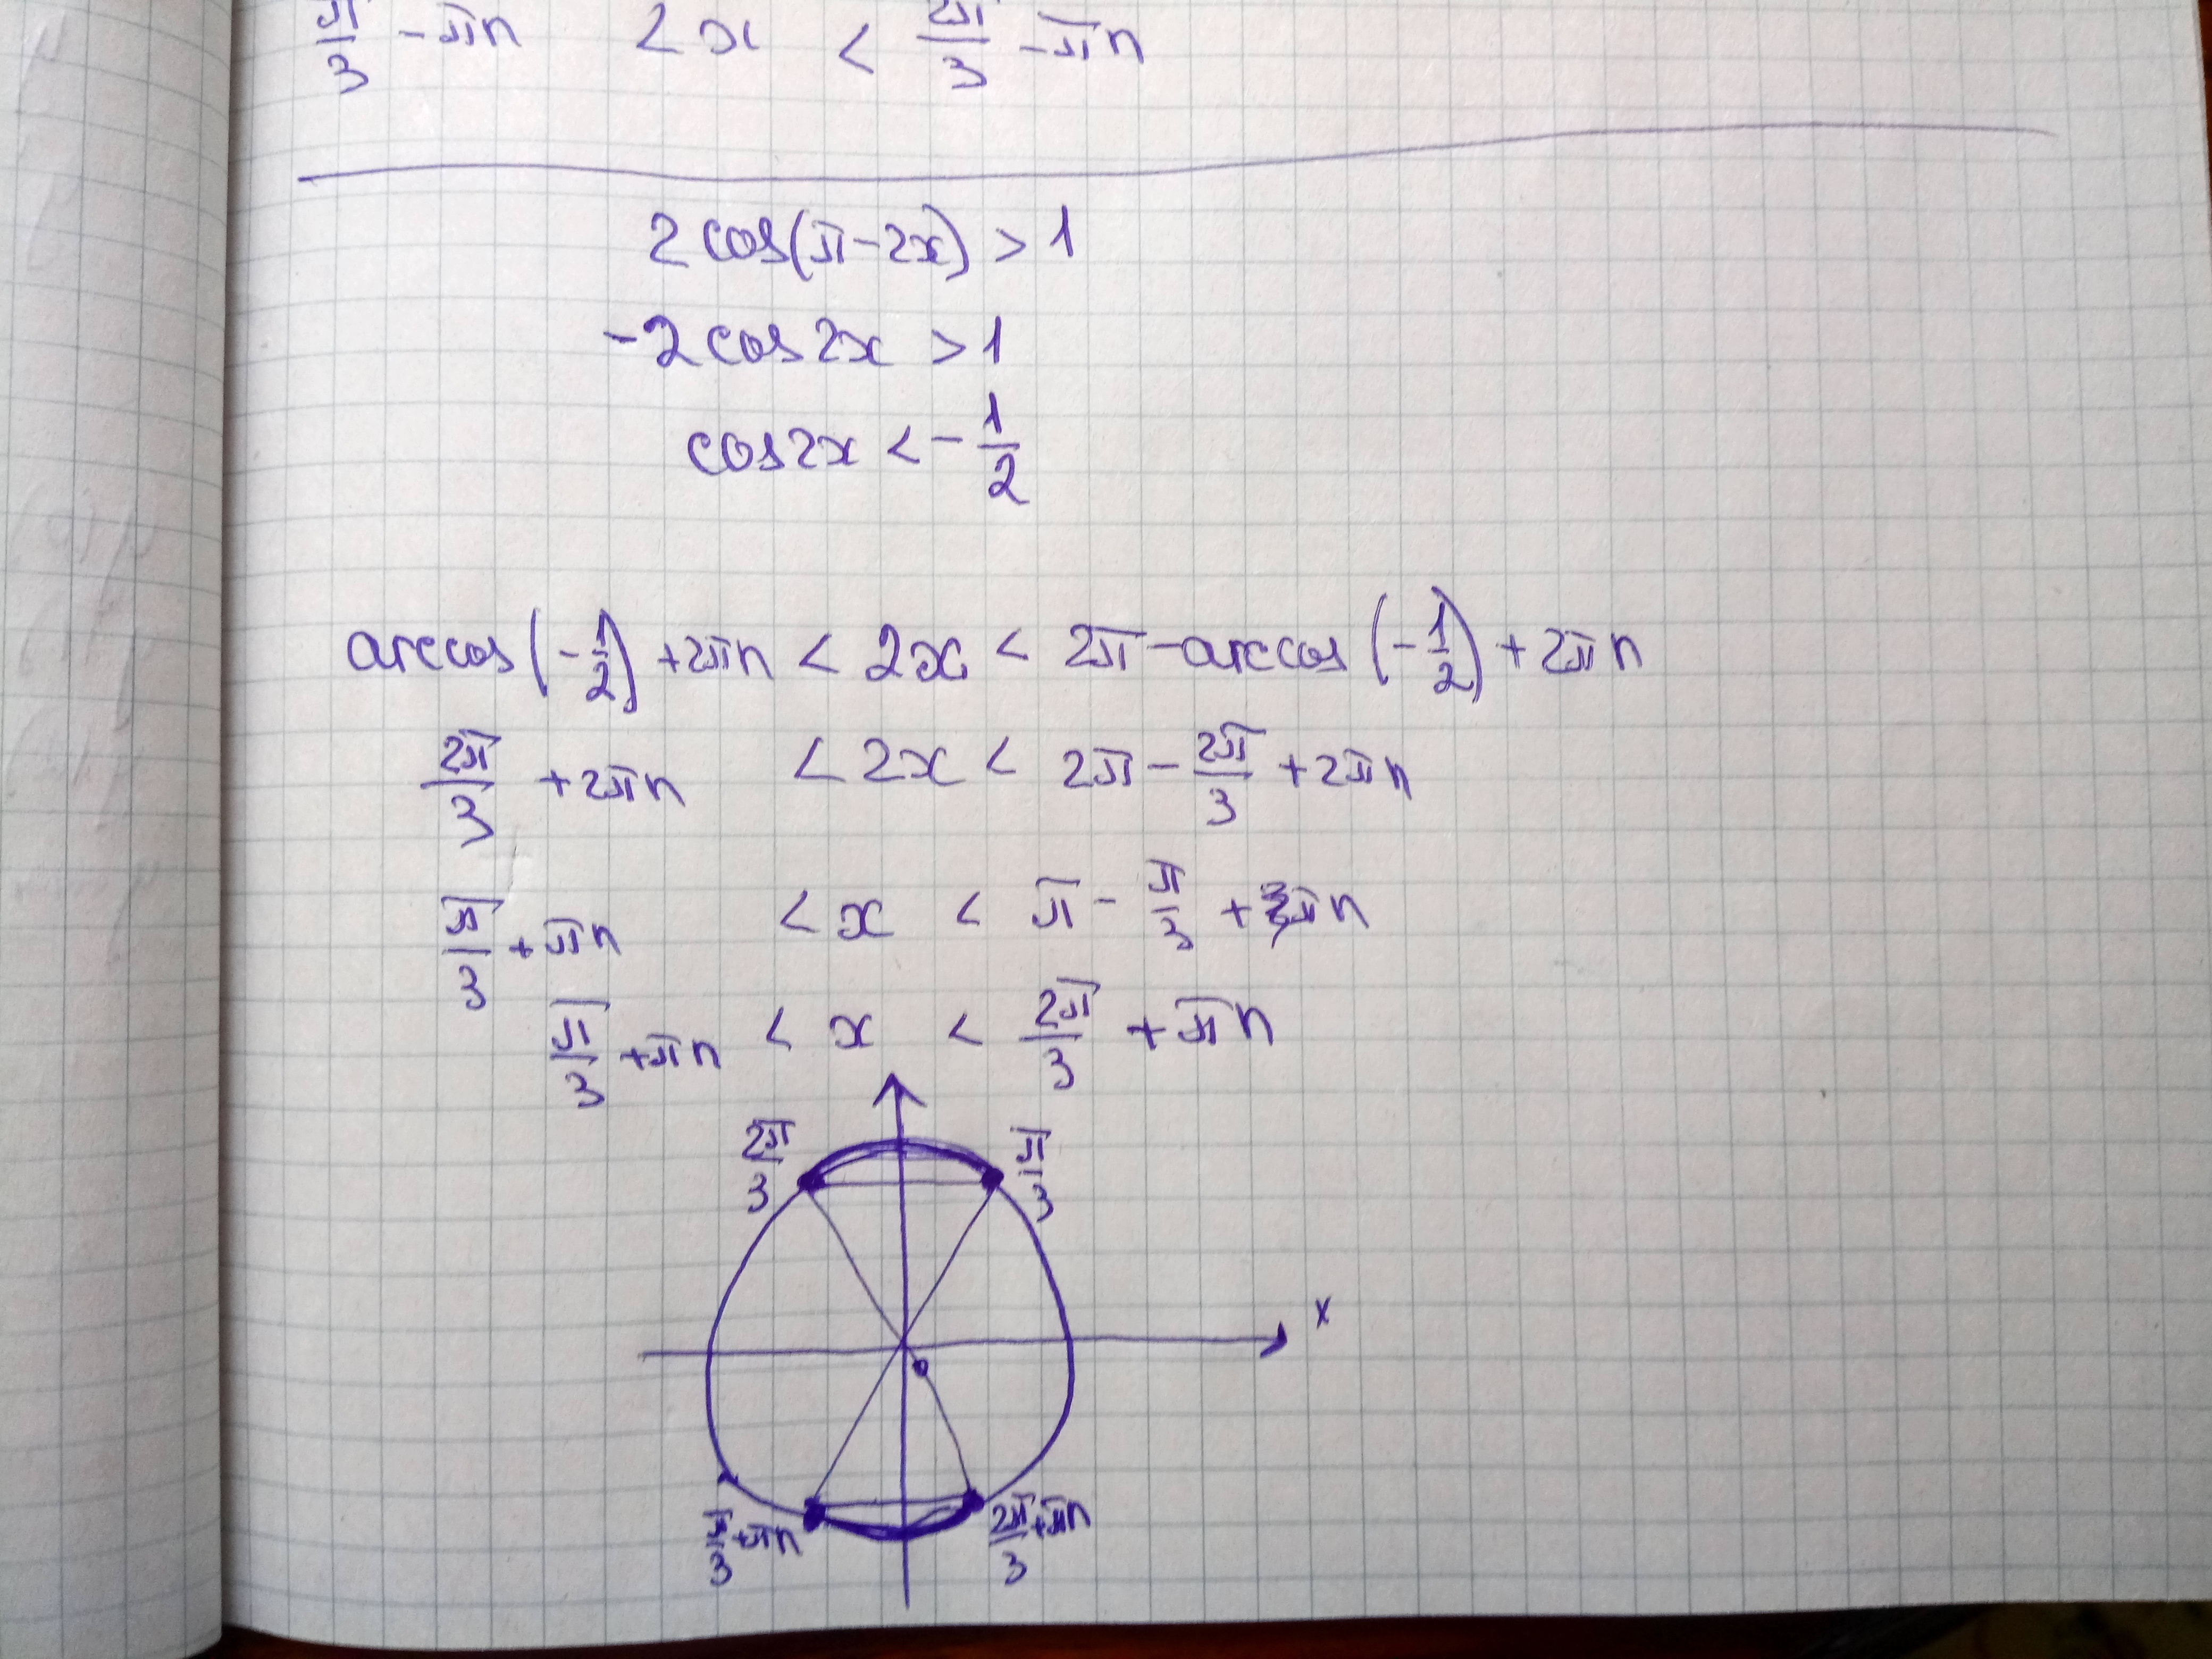 π/3 - πn < x < 2π/3 - πn
2cos(π-2x) > 1
-2cos2x > 1
cos2x < -1/2
arccos(-1/2) + 2πn < 2x < 2π - arccos(-1/2) + 2πn
2π/3 + 2πn < 2x < 2π - 2π/3 + 2πn
π/3 + πn < x < π - π/3 + πn
π/3 + πn < x < 2π/3 + πn
2π/3
π/3
x
π/3 + πn
2π/3 + πn